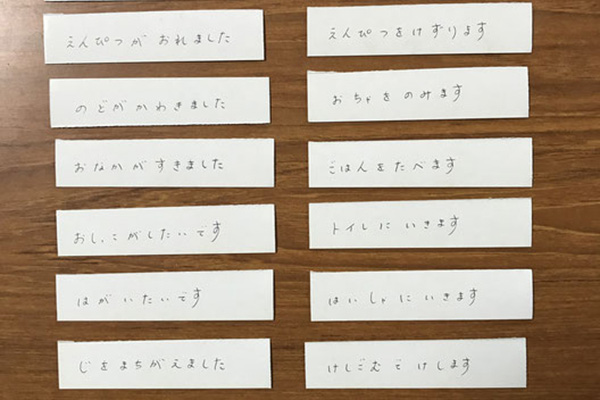 えんぴつが おれました
えんぴつをけずります
のどがかわきました
おちゃをのみます
おなかがすきました
ごはんをたべます
おしっこがしたいです
トイレにいきます
はがいたいです
はいしゃにいきます
じをまちがえました
けしごむでけします